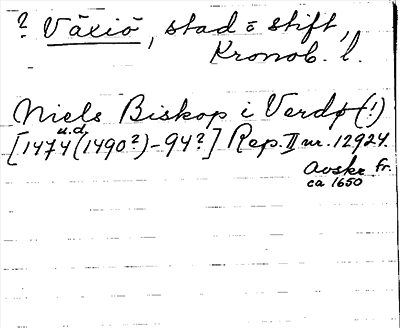 ? Växiö, stad o stift,
Kronob. l.
Niels Biskop i Verdø (!)
u.d.
[1474 (1490?)-94?] Rep. II nr. 12924.
Avskr. fr.
ca 1650